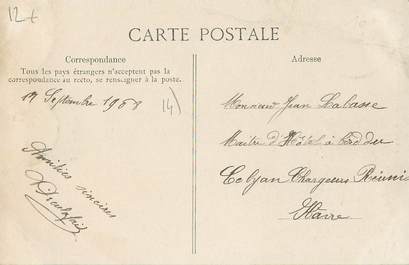 12+
CARTE POSTALE
Correspondance
Tous les pays étrangers n'acceptent pas la
correspondance au recto, se renseigner à la poste.
Adresse
17 Septembre 1908
14)
Monsieur Jean Labasse
Maitre d'Hôtel à bord du
Chargeurs Réunis
Havre
Amitiés sincères